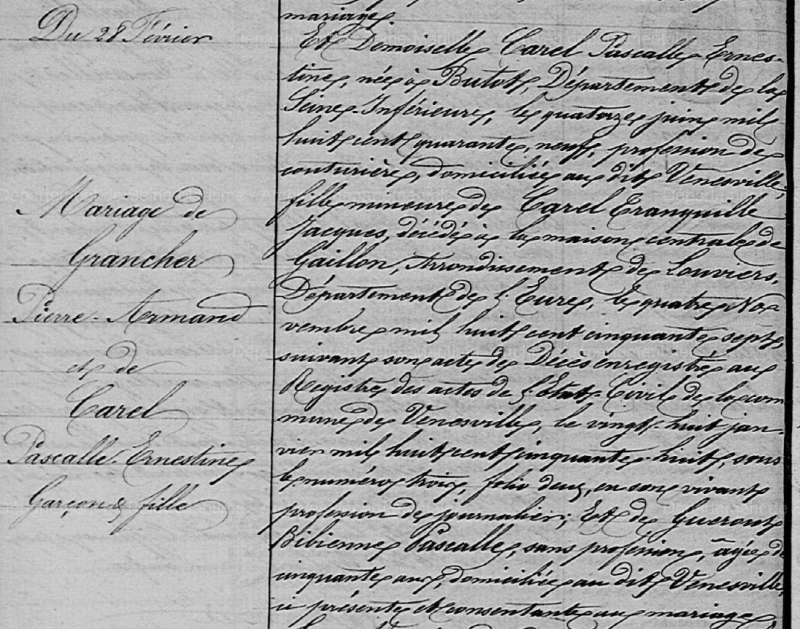 Du 28 Février
Mariage de
Grancher
Pierre-Armand
et de
Carel
Pascalle-Ernestine
Garçon & fille
mariage.
Et Demoiselle Carel Pascalle Ernes-
tine, née à Butot, Département de la
Seine-Inférieure, le quatorze juin mil
huit cent quarante, neuf, profession de
couturière, domiciliée au dit Venesville,
fille mineure de Carel Tranquille
Jacques, décédé à la maison centrale de
Gaillon, Arrondissement de Louviers,
Département de l'Eure, le quatre No-
vembre mil huit cent cinquante sept,
suivant son acte de Décès enregistré au
Registre des actes de l'État-Civil de la com-
mune de Venesville, le vingt-huit jan-
vier mil huit cent cinquante-huit, sous
le numéro trois, folio deux, en son vivant
profession de journalier; Et de Gueront
Bibienne Pascalle, sans profession, âgée de
cinquante ans, domiciliée au dit Venesville,
ci présente et consentante au mariage,